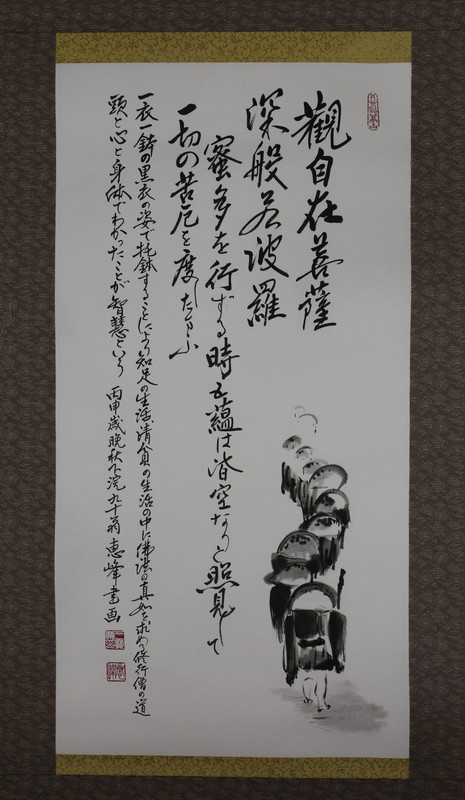 觀自在菩薩
深般若波羅
蜜多を行ずる時五蘊は皆空なりと照見して
一切の苦厄を度したまふ
一衣一鉢の黒衣の姿で托鉢することにより知足の生活清貧の生活の中に佛法の真如を求め修行僧の道
頭と心と身体でわかったことが智慧という 丙申歳晩秋下浣九十翁 恵峰書画